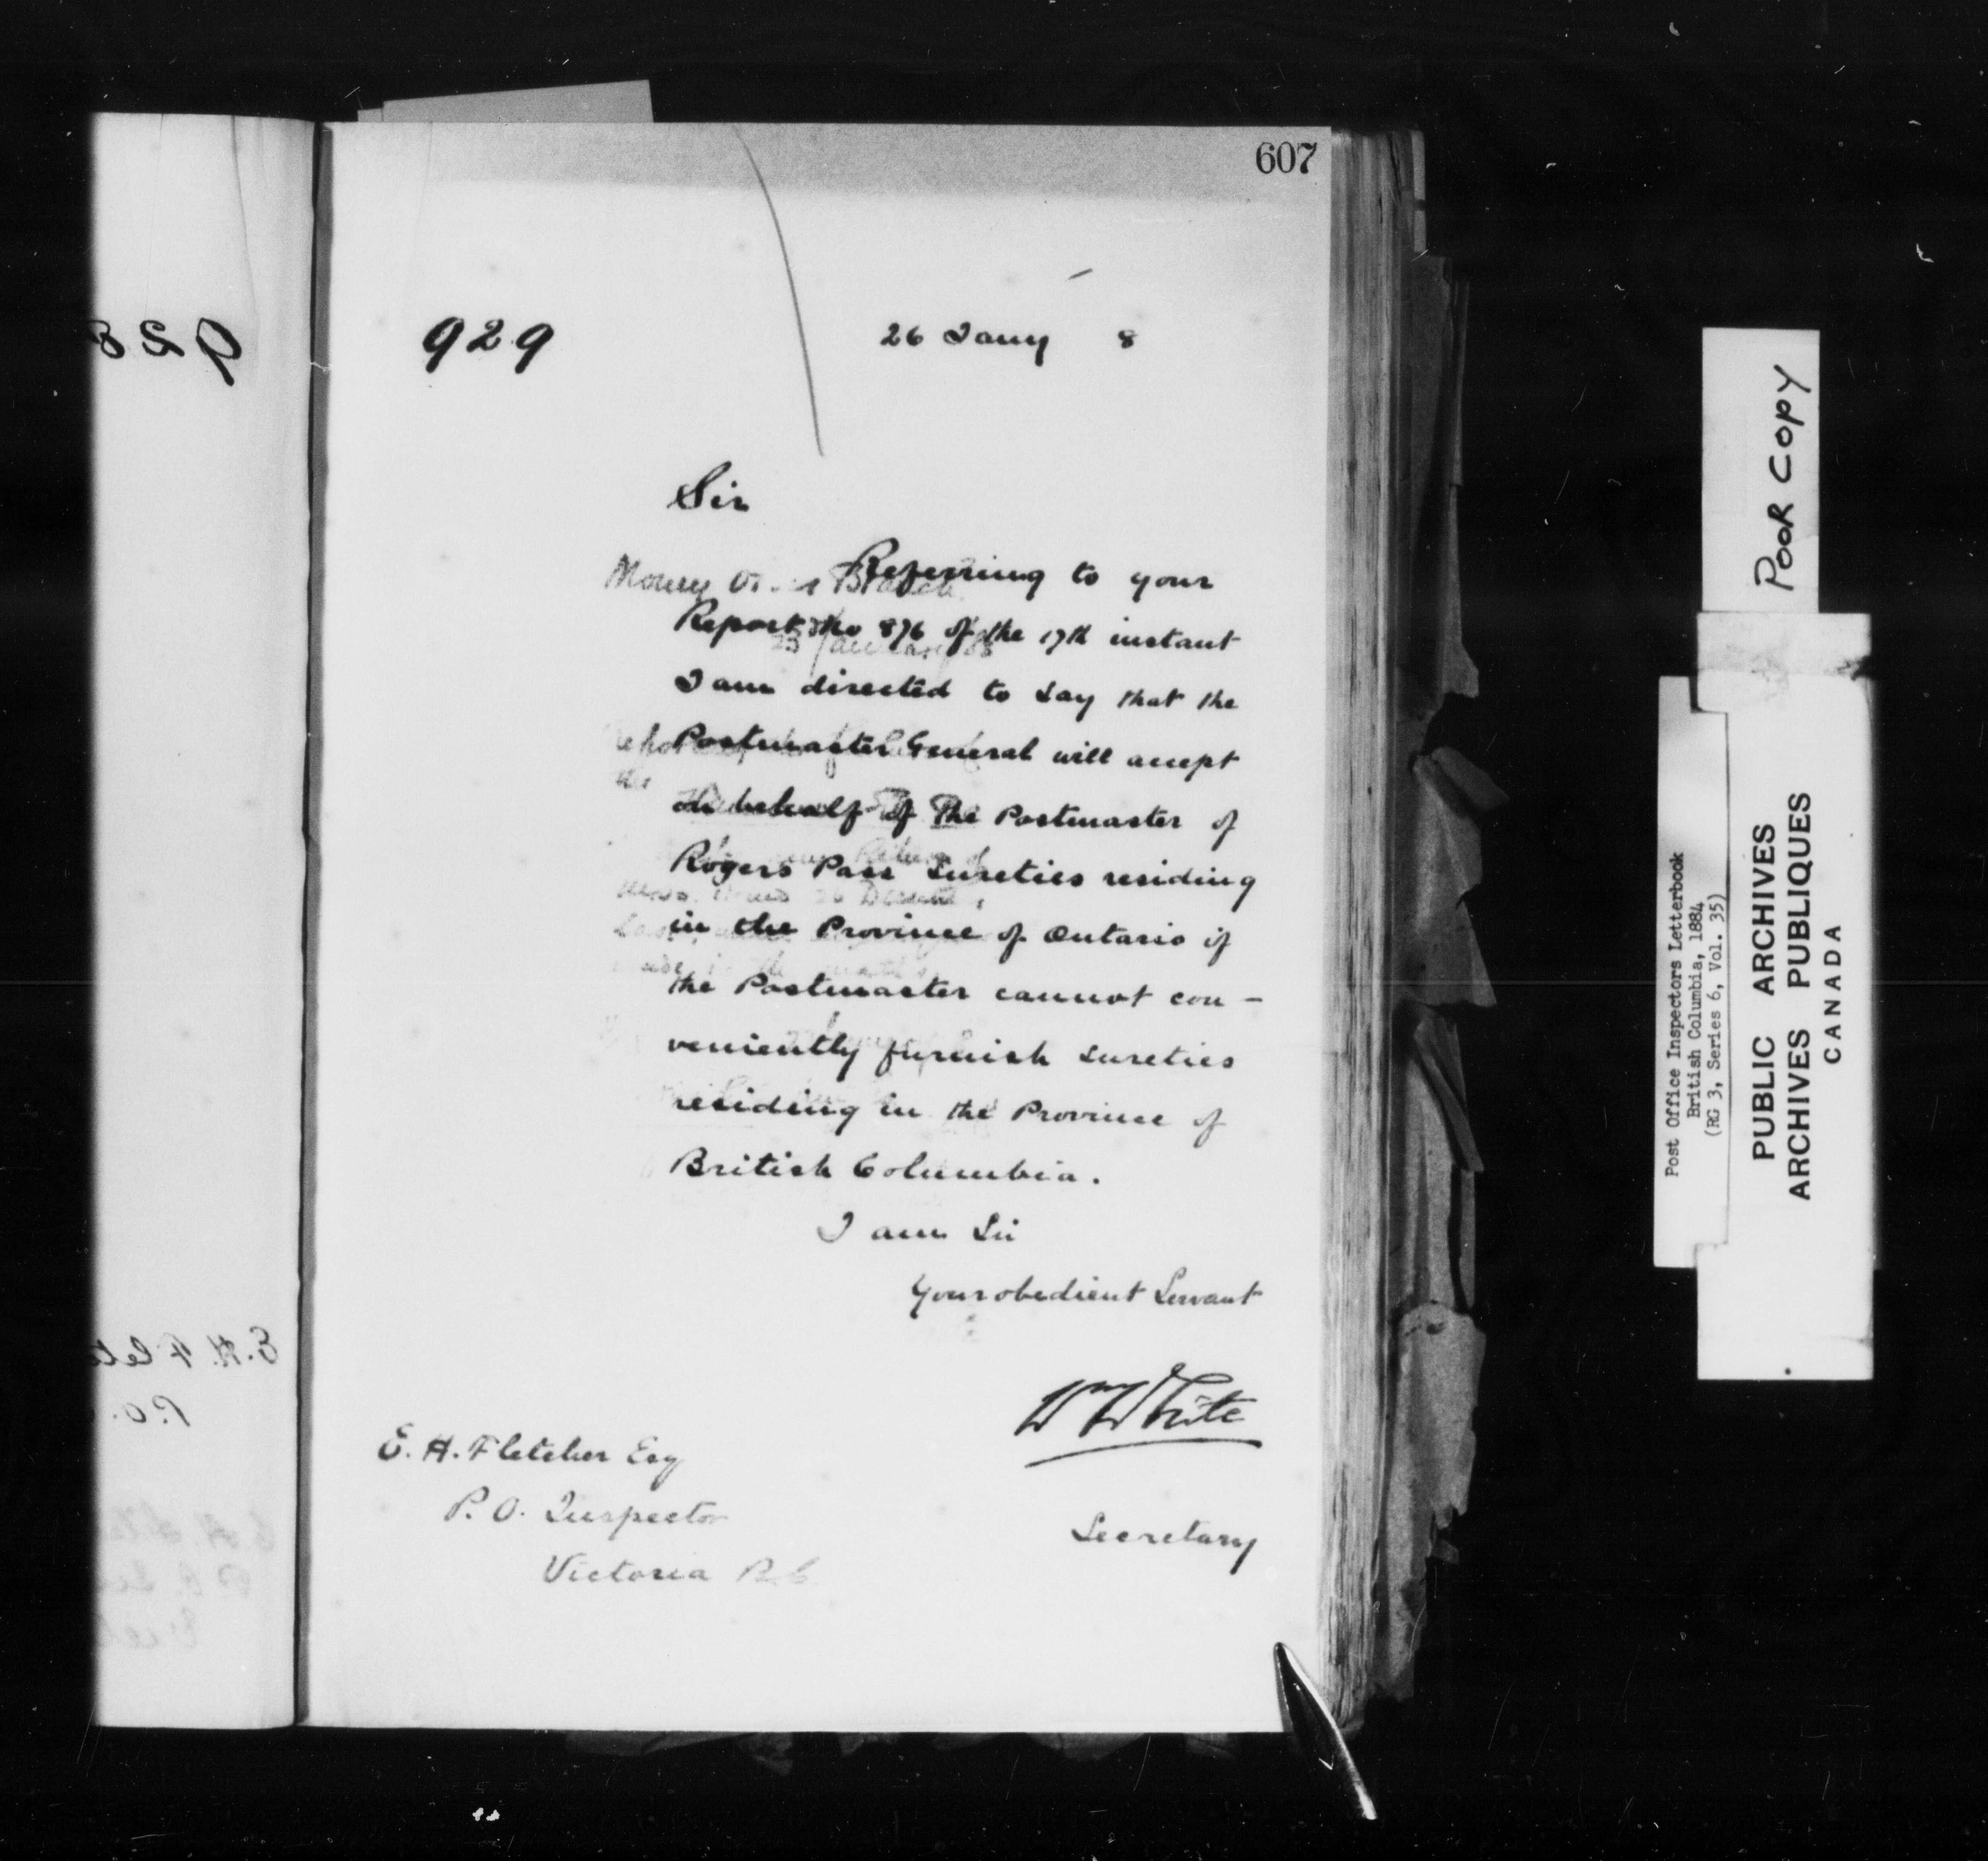 607
929
26 Jany 8
Sir
Referring to your
Report No 876 of the 17th instant
I am directed to say that the
Postmaster General will accept
on behalf of the Postmaster of
Rogers Pass Sureties residing
in the Province of Ontario if
the Postmaster cannot con-
veniently furnish sureties
residing in the Province of
British Columbia.
I am Sir
Your obedient Servant
Wm White
Secretary
E. H. Fletcher Esq
P. O. Inspector
Victoria B.C.
Poor Copy
Post Office Inspectors Letterbook
British Columbia, 1884
(RG 3, Series 6, Vol. 35)
PUBLIC ARCHIVES
ARCHIVES PUBLIQUES
CANADA